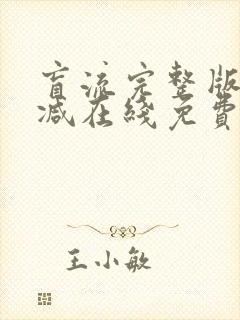 盲流完整版
减在线免費
王小敏